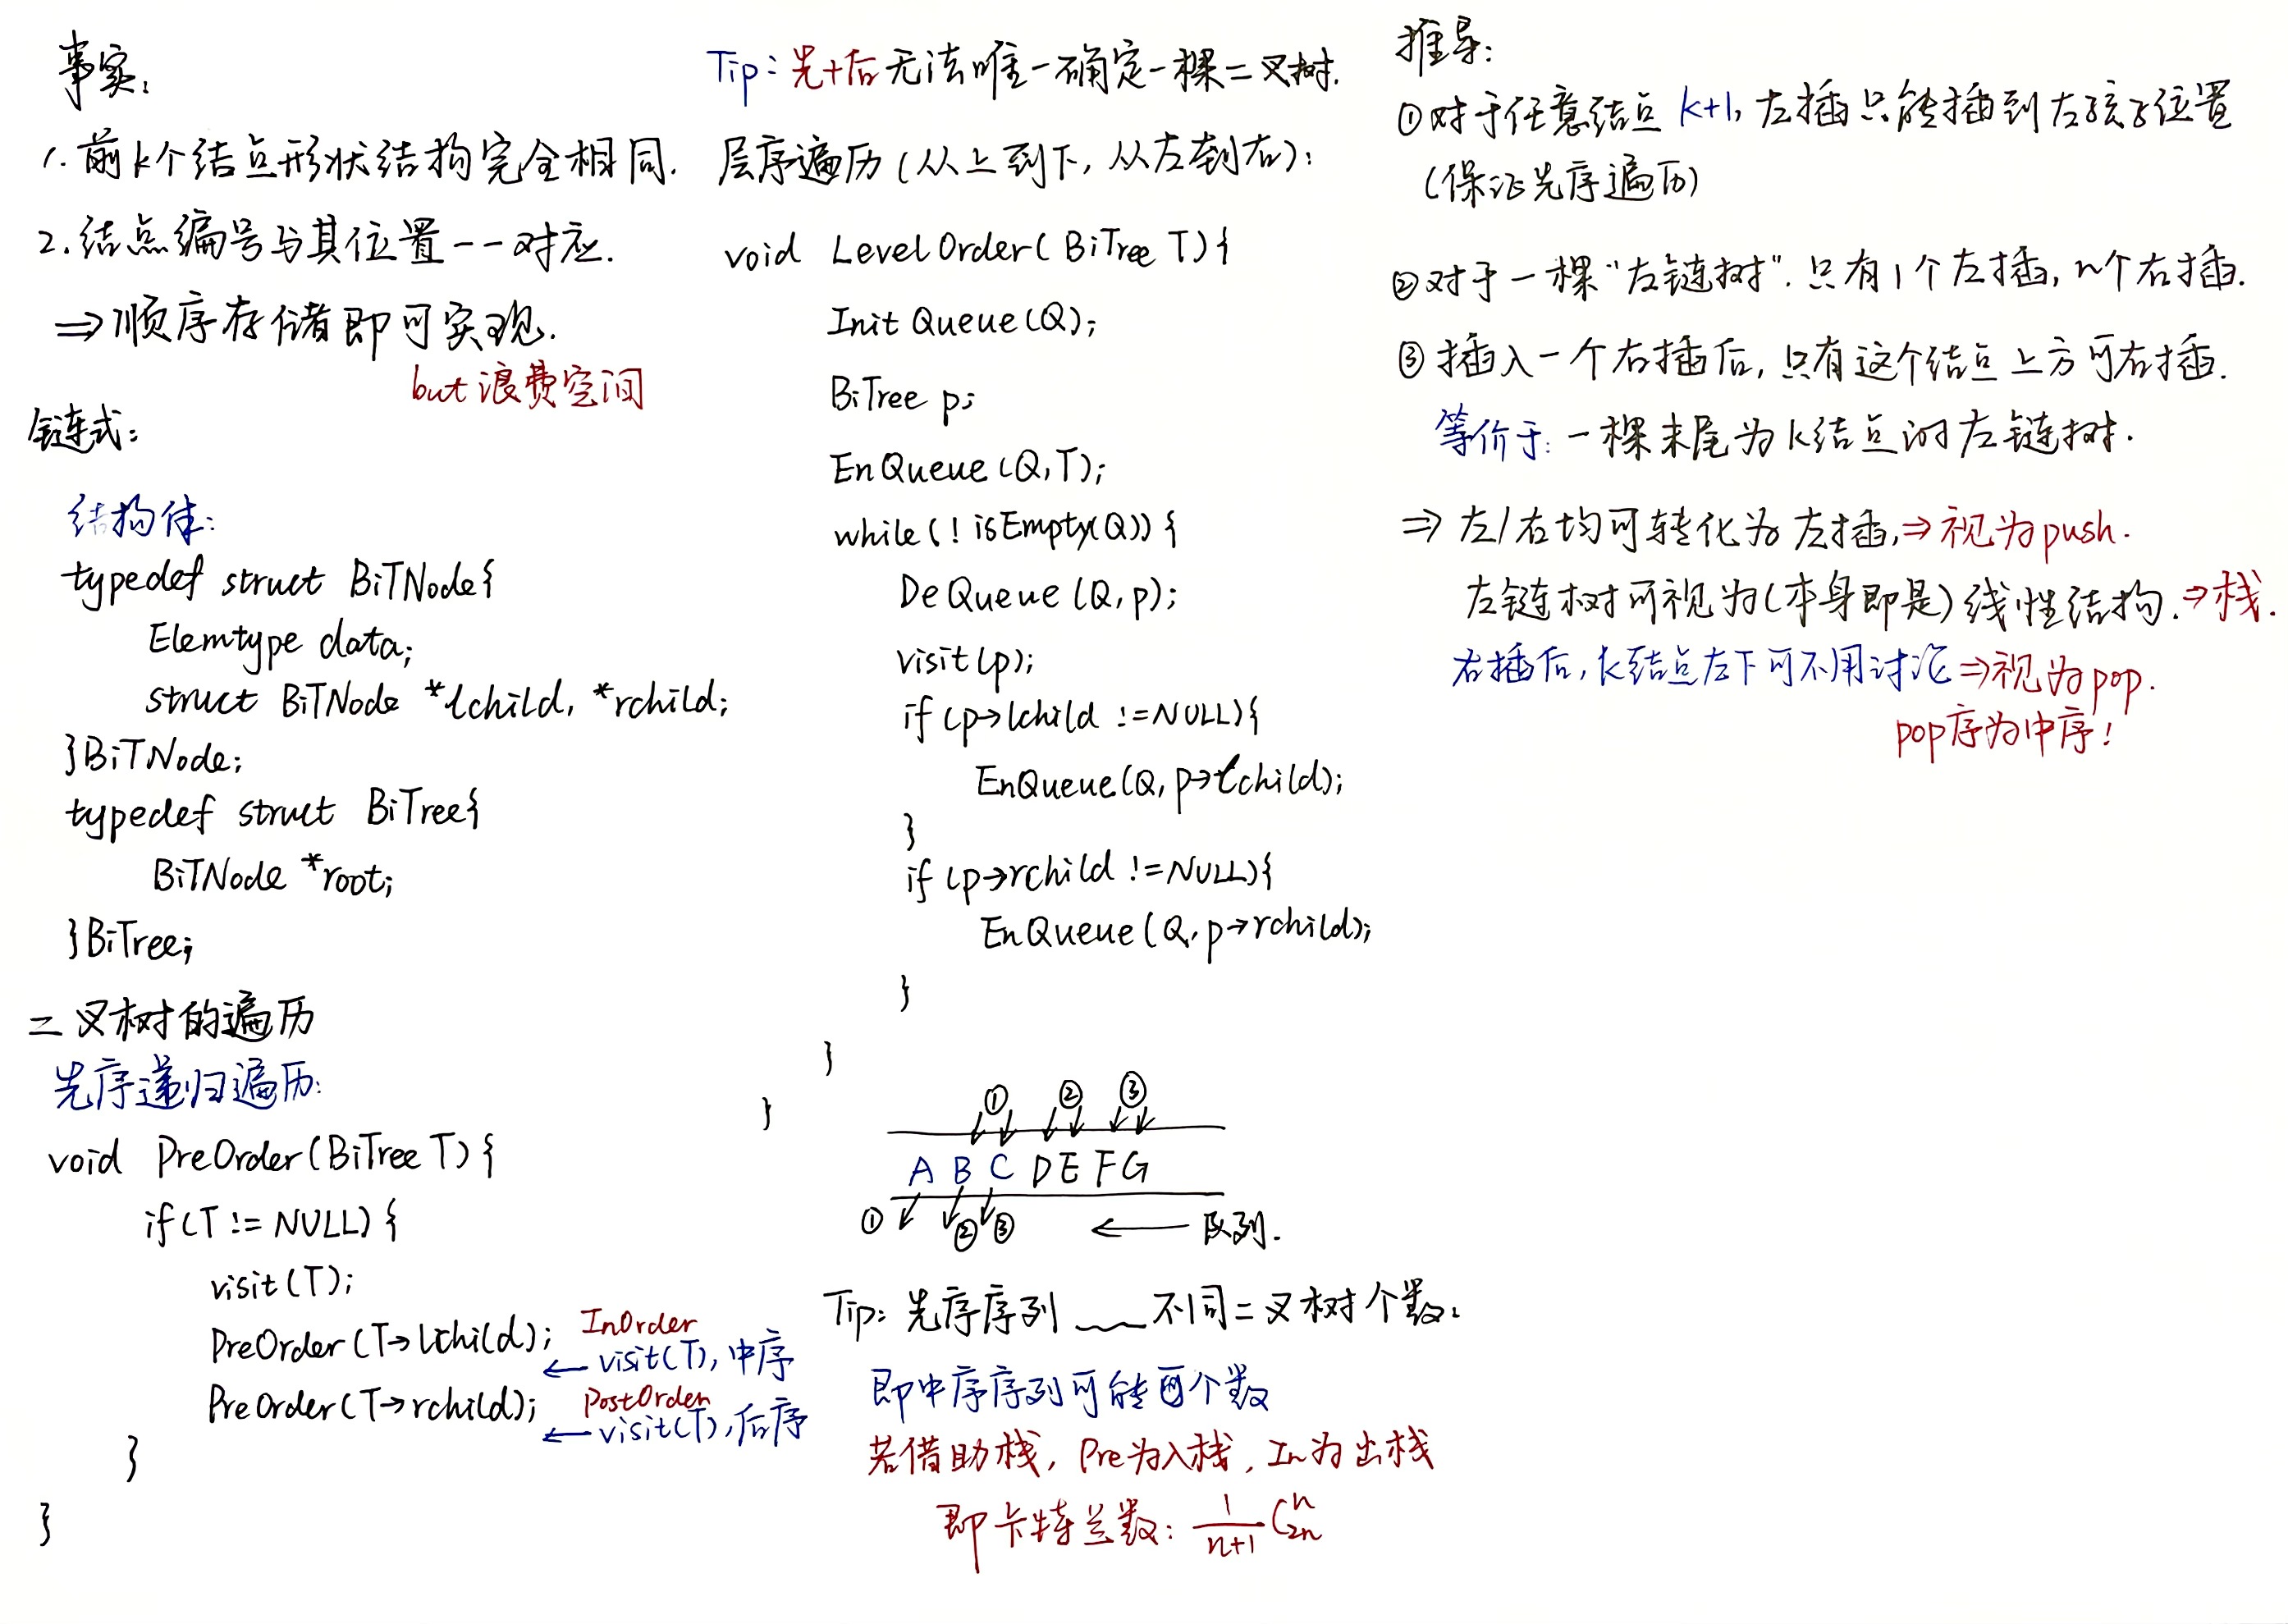 事实:
1. 前k个结点形状结构完全相同.
2. 结点编号与其位置一一对应.
⇒ 顺序存储即可实现.
but 浪费空间
链式:
结构体:
typedef struct BiTNode{
Elemtype data;
struct BiTNode *lchild, *rchild;
}BiTNode;
typedef struct BiTree{
BiTNode *root;
}BiTree;
二叉树的遍历
先序递归遍历:
void PreOrder(BiTree T){
if(T != NULL){
visit(T);
PreOrder(T→lchild);
InOrder
← visit(T), 中序
PreOrder(T→rchild);
PostOrder
← visit(T), 后序
}
}
Tip: 先+后 无法唯一确定一棵二叉树.
层序遍历(从上到下, 从左到右):
void LevelOrder( BiTree T){
InitQueue(Q);
BiTree p;
EnQueue(Q,T);
while(! isEmpty(Q)){
DeQueue(Q, p);
visit(p);
if(p→lchild != NULL){
EnQueue(Q, p→lchild);
}
if(p→rchild != NULL){
EnQueue(Q, p→rchild);
}
}
}
① ② ③
A B C D E F G
① ② ③ ← 队列.
Tip: 先序序列 不同二叉树个数:
即中序序列可能的个数
若借助栈, Pre为入栈, In为出栈
即卡特兰数: 1/(n+1) C_{2n}^{n}
推导:
①对于任意结点 k+1, 左插只能插到左孩子位置
(保证先序遍历)
②对于一棵“左链树”. 只有1个左插, n个右插.
③ 插入一个右插后, 只有这个结点上方可右插.
等价于: 一棵末尾为k结点的左链树.
⇒ 左/右均可转化为左插, ⇒ 视为push.
左链树可视为(本身即是)线性结构. ⇒ 栈.
右插后, k结点左下可不用讨论 ⇒ 视为pop.
pop序为中序!